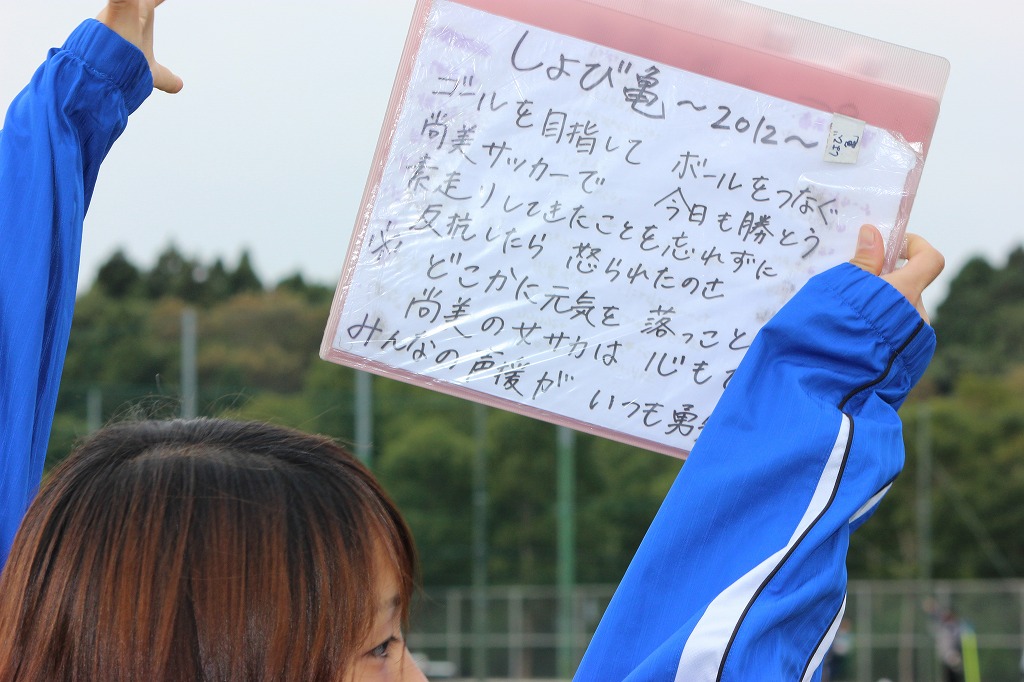 しょび亀～2012～
ゴールを目指して ボールをつなぐ
尚美サッカーで 今日も勝とう
素走りしてきたことを忘れずに
反抗したら 怒られたのさ
どこかに元気を 落っこと
尚美の女サカは 心も
みんなの声援が いつも勇